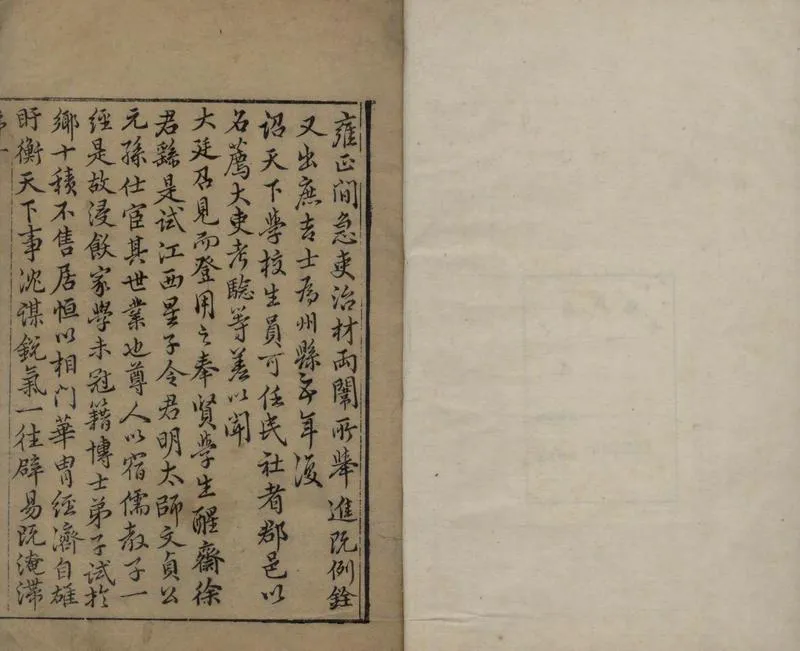 雍正间急吏治材两闈所舉進既例銓
又出庶吉士為州縣壬子年復
詔天下學校生員可任民社者郡邑以
名薦大吏考驗等差以聞
大廷召見而登用之奉賢學生醒齋徐
君繇是試江西星子令君明太師文貞公
元孫仕宦其世業也尊人以宿儒教子一
經是故浸飲家學未冠籍博士弟子試於
鄉十積不售居恒以相门華胄經濟自雄
盱衡天下事沈謀銳氣一往辟易既淹滯